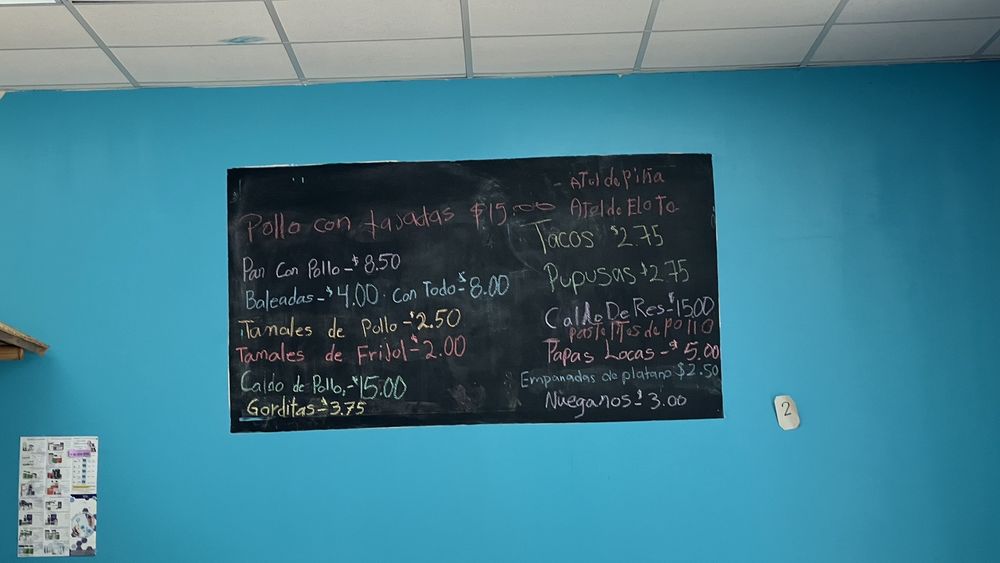 Pollo con tajadas $15.00
Pan Con Pollo - $8.50
Baleadas - $4.00. Con Todo - $8.00
Tamales de Pollo - $2.50
Tamales de Frijol - $2.00
Caldo de Pollo. - $15.00
Gorditas - $3.75
- Atol de Piña
Atol de Elote
Tacos $2.75
Pupusas $2.75
Caldo De Res - $15.00
Pastelitos de pollo
Papas Locas - $5.00
Empanadas de platano $2.50
Nueganos - $3.00
2